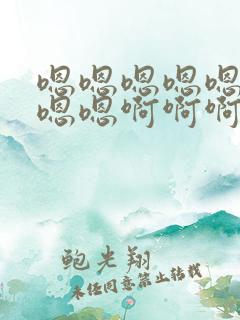 嗯嗯嗯嗯嗯
嗯嗯啊啊啊
鲍光翔
未经同意禁止转载